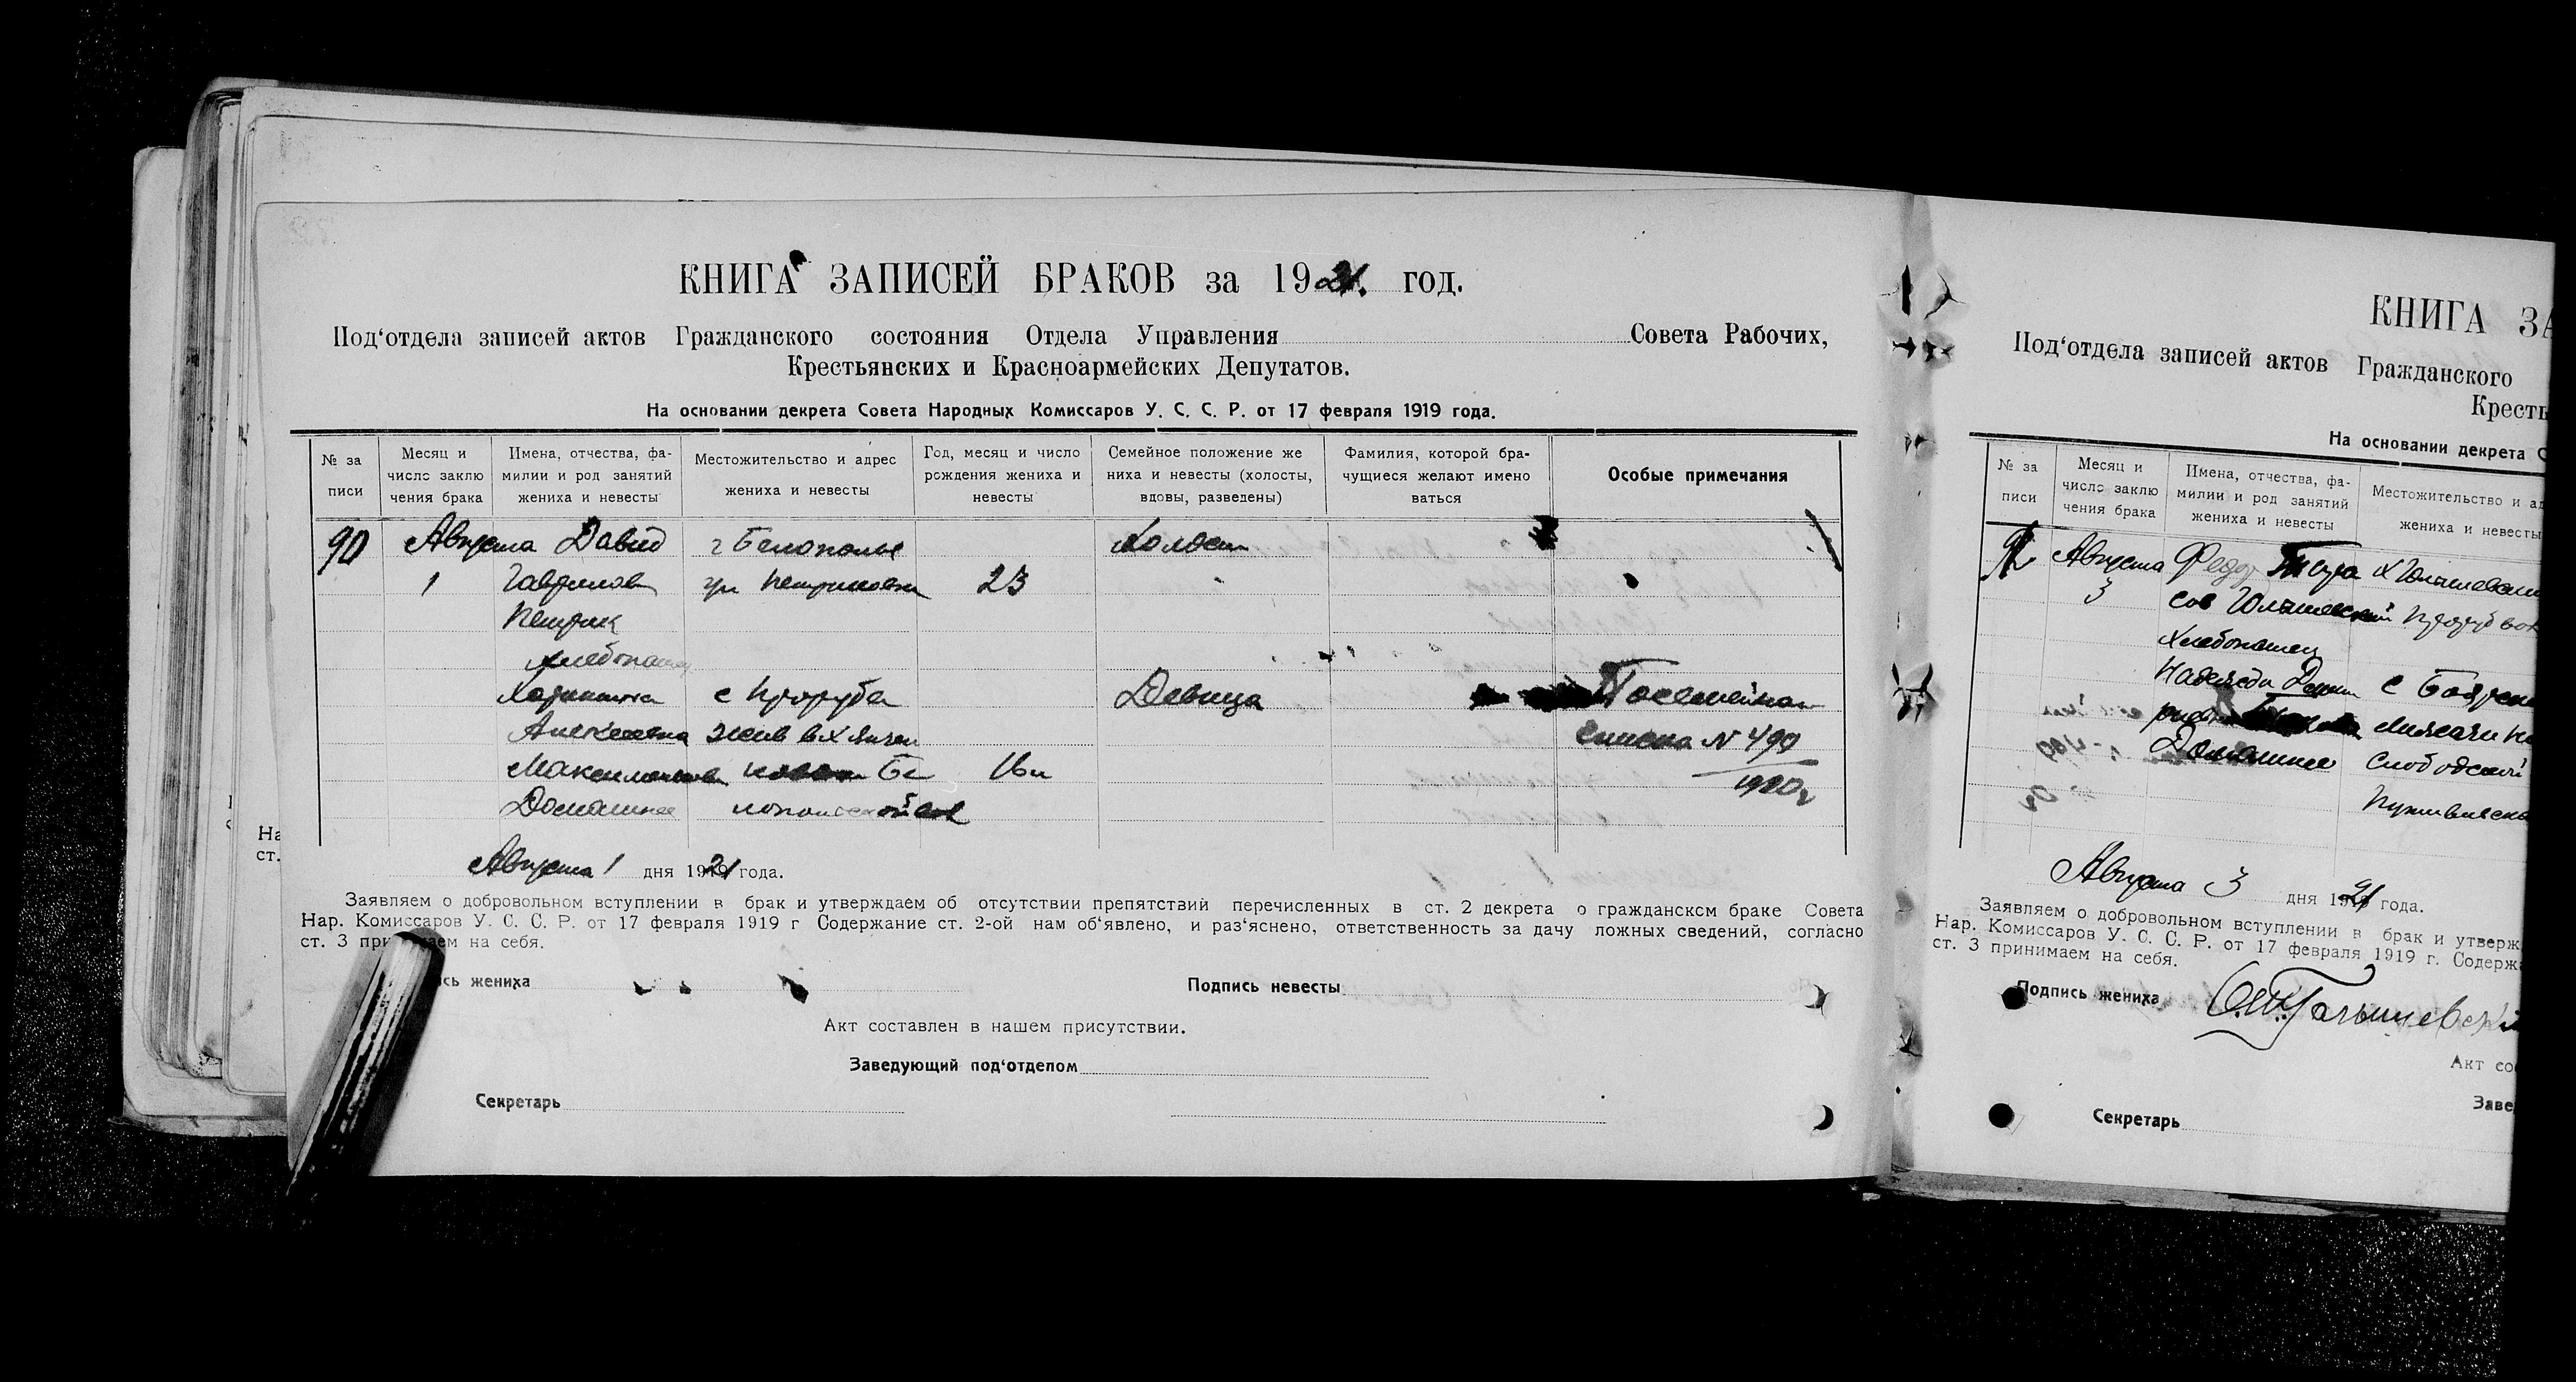 КНИГА ЗАПИСЕЙ БРАКОВ за 1921. год.
Под‘отдела записей актов Гражданского состояния Отдела Управления Совета Рабочих,
Крестьянских и Красноармейских Депутатов.
На основании декрета Совета Народных Комиссаров У. С. С. Р. от 17 февраля 1919 года.
№ за писи
Месяц и число заклю чения брака
Имена, отчества, фа- милии и род занятий жениха и невесты
Местожительство и адрес жениха и невесты
Год, месяц и число рождения жениха и невесты
Семейное положение же ниха и невесты (холосты, вдовы, разведены)
Фамилия, которой бра- чущиеся желают имено ваться
Особые примечания
90 Августа Давид г Белополье Холост
1 Гаврилов 23
Петрик
хлебопашец
с Прорубь Девица Посемейном
Алексеевна жив в х
Максименкова Бе 16 л
Домашнее
списка N 490
1920 г
Августа 1 дня 1921 года.
Заявляем о добровольном вступлении в брак и утверждаем об отсутствии препятствий перечисленных в ст. 2 декрета о гражданском браке Совета
Нар. Комиссаров У. С. С. Р. от 17 февраля 1919 г Содержание ст. 2-ой нам об‘явлено, и раз‘яснено, ответственность за дачу ложных сведений, согласно
ст. 3 при ем на себя.
сь жениха Подпись невесты
Акт составлен в нашем присутствии.
Заведующий под‘отделом
Секретарь
На
ст.
КНИГА ЗА
Под‘отдела записей актов Гражданского
Кресть
На основании декрета С
№ за писи
Месяц и число заклю чения брака
Имена, отчества, фа- милии и род занятий жениха и невесты
Местожительство и ад жениха и невесты
Августа Федор
3
Хлебопашец
Надежда с
Домашнее Слободской
Августа 3 дня 1921 года.
Заявляем о добровольном вступлении в брак и утверж
Нар. Комиссаров У. С. С. Р. от 17 февраля 1919 г. Содерж
ст. 3 принимаем на себя.
Подпись жениха
Акт со
Заве
Секретарь